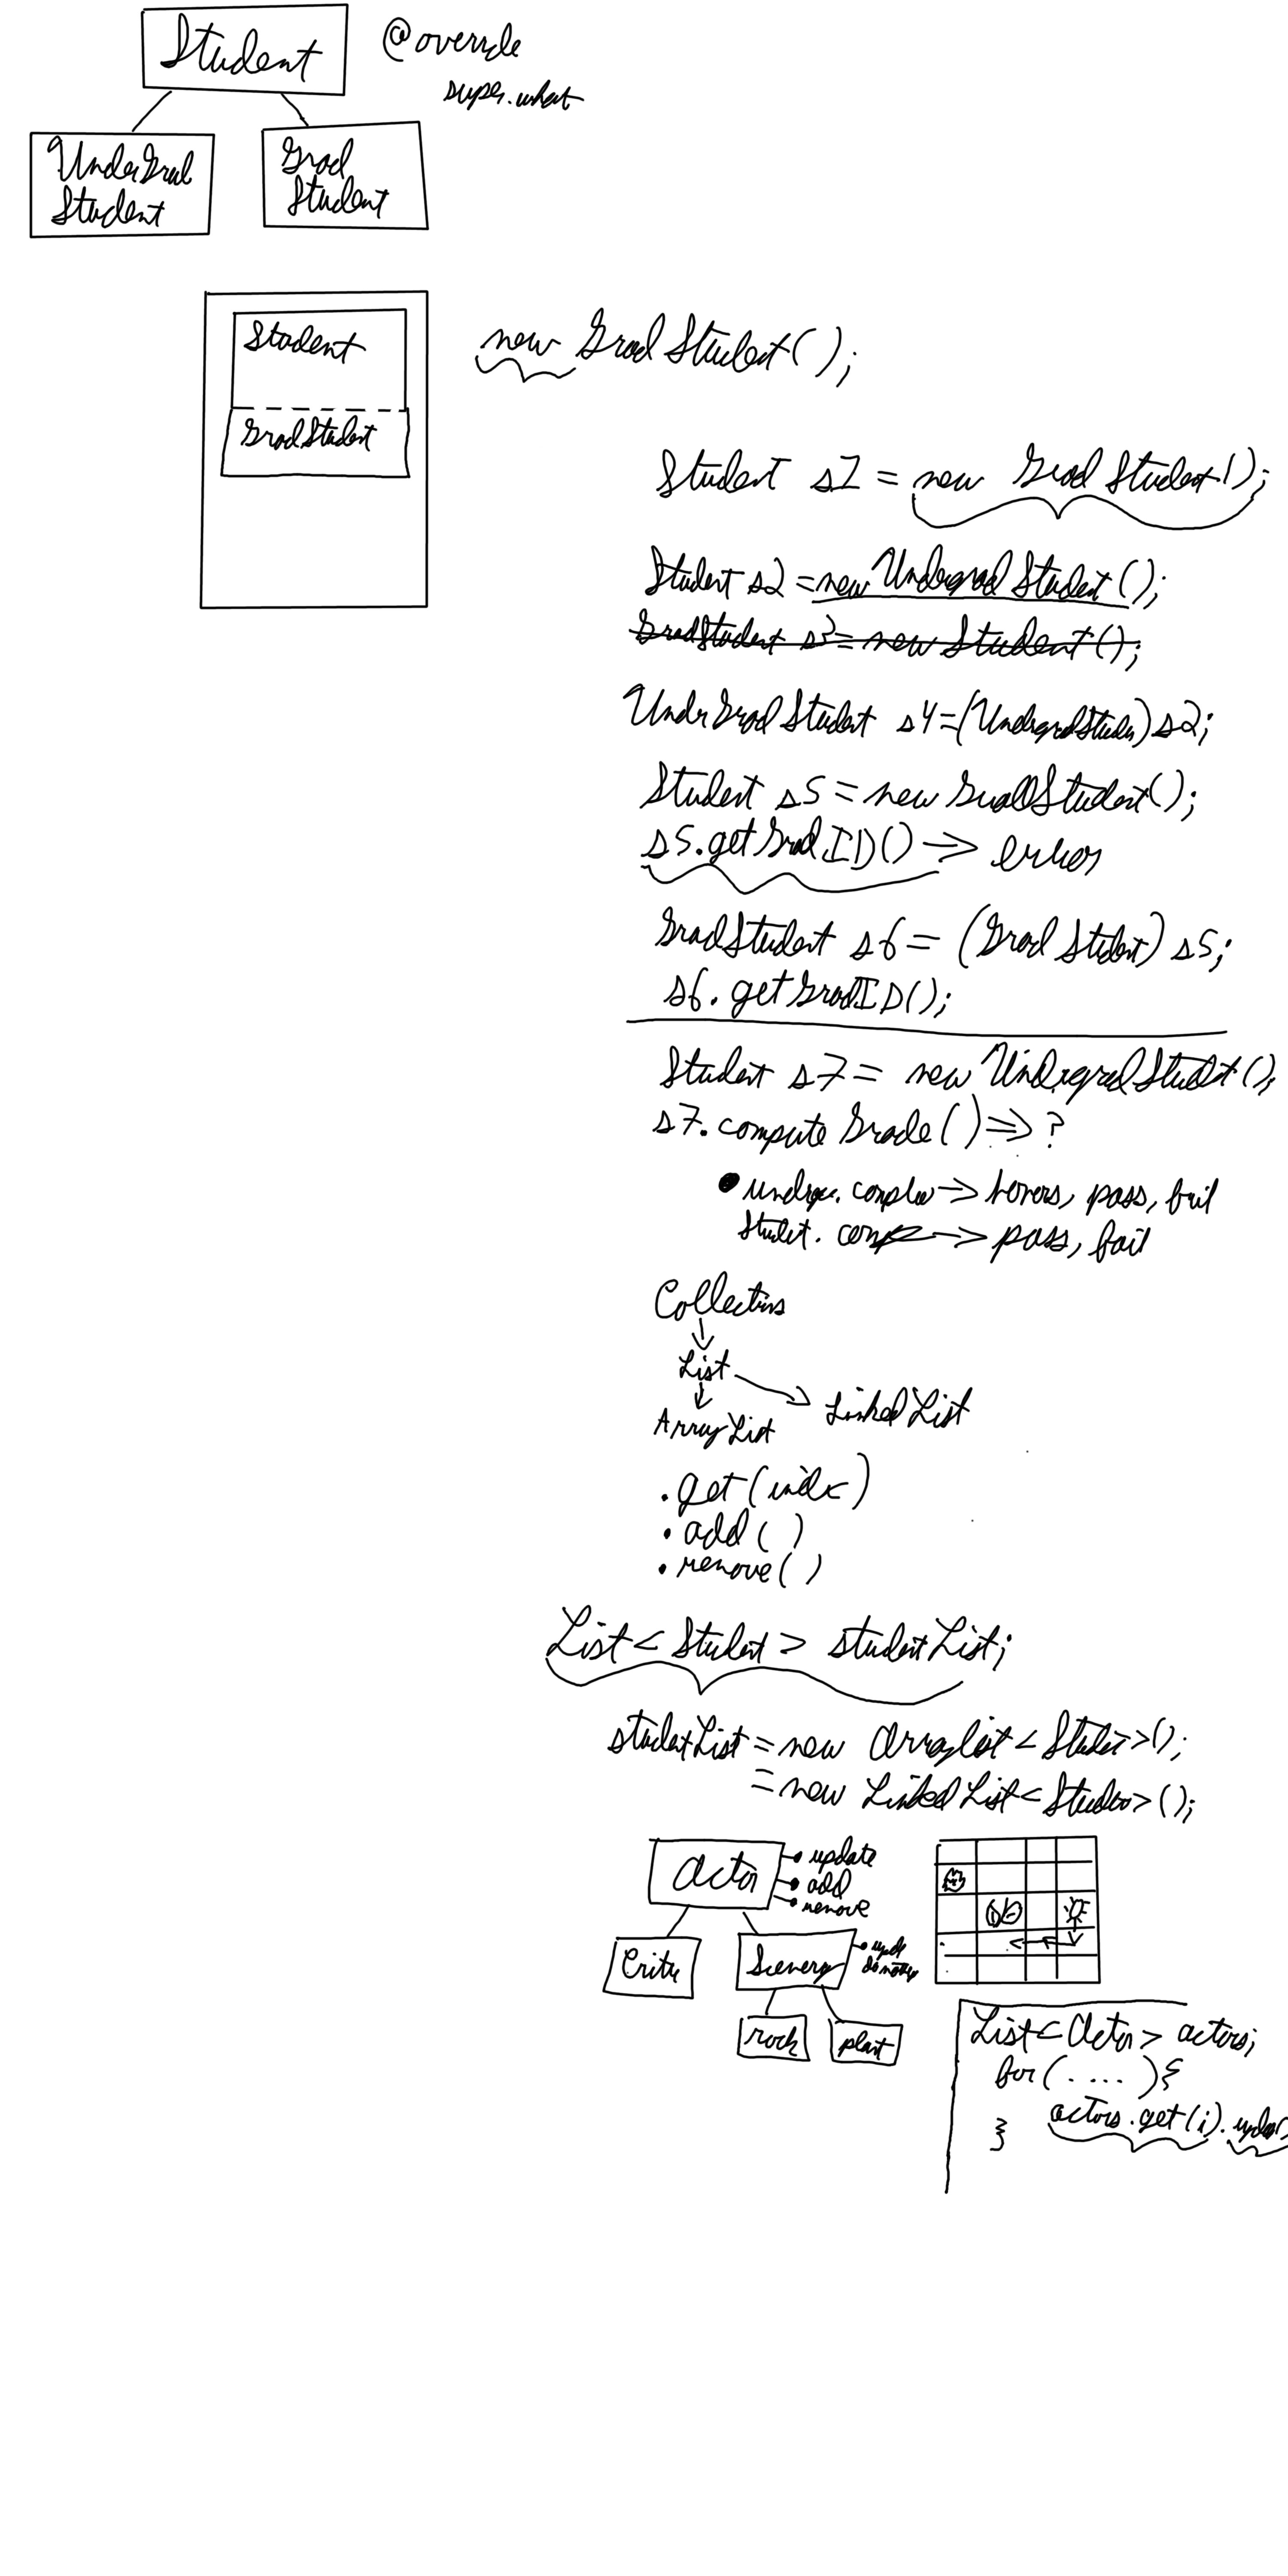 Student
@override
super.what
UnderGrad
Student
Grad
Student
Student
GradStudent
new GradStudent();
Student s1 = new GradStudent();
Student s2 = new UndergradStudent();
GradStudent s3 = new Student();
UnderGradStudent s4 = (UndergradStuden) s2;
Student s5 = new GradStudent();
s5.getGradID() => error
GradStudent s6 = (Grad Student) s5;
s6.getGradID();
Student s7 = new UndergradStudent();
s7.computeGrade() => ?
honors, pass, fail
pass, fail
Collections
List
LinkedList
ArrayList
.get(index)
.add()
.remove()
List<Student> studentList;
studentList = new ArrayList<Student>();
= new LinkedList<Student>();
Actor
update
add
remove
Critter
Scenery
rock
plant
List<Actor> actors;
for(....){
actors.get(i).update
}